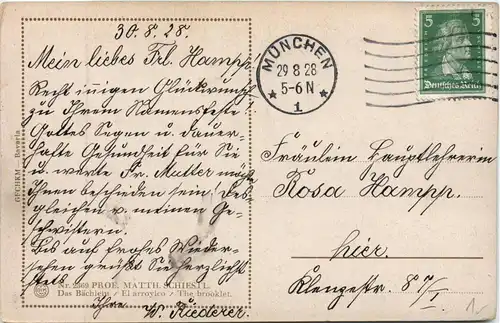 30.8.28.
Mein liebes Frl. Hampp.
Recht innigen Glückwunsch
zu Ihrem Namensfeste!
Gottes Segen u. dauer-
hafte Gesundheit für Sie
u. werte Fr. Mutter möge
Ihnen bescheiden sein! Des
gleichen v. meinen Ge-
schwistern.
Bis auf frohes Wieder-
sehen grüßt Sie herzlichst
stets
Ihre W. Riederer.
Nr. 2369 PROF. MATTH. SCHIESTL.
Das Bächlein / El arroyico / The brooklet.
Bavaria
MÜNCHEN
29 8 28
5-6 N
* 1 *
5 5
Deutsches Reich
Fräulein Hauptlehrerin
Rosa Hampp.
hier.
Klenzestr. 87/I
1.-